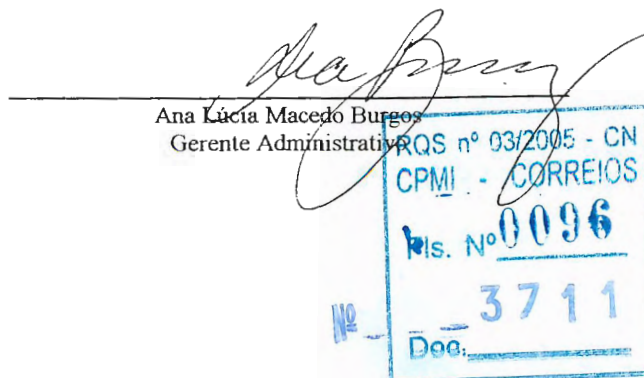 Ana Lúcia Macedo Burgos
Gerente Administrativo
RQS nº 03/2005 - CN
CPMI - CORREIOS
Fls. Nº 0096
Nº 3711
Doc.